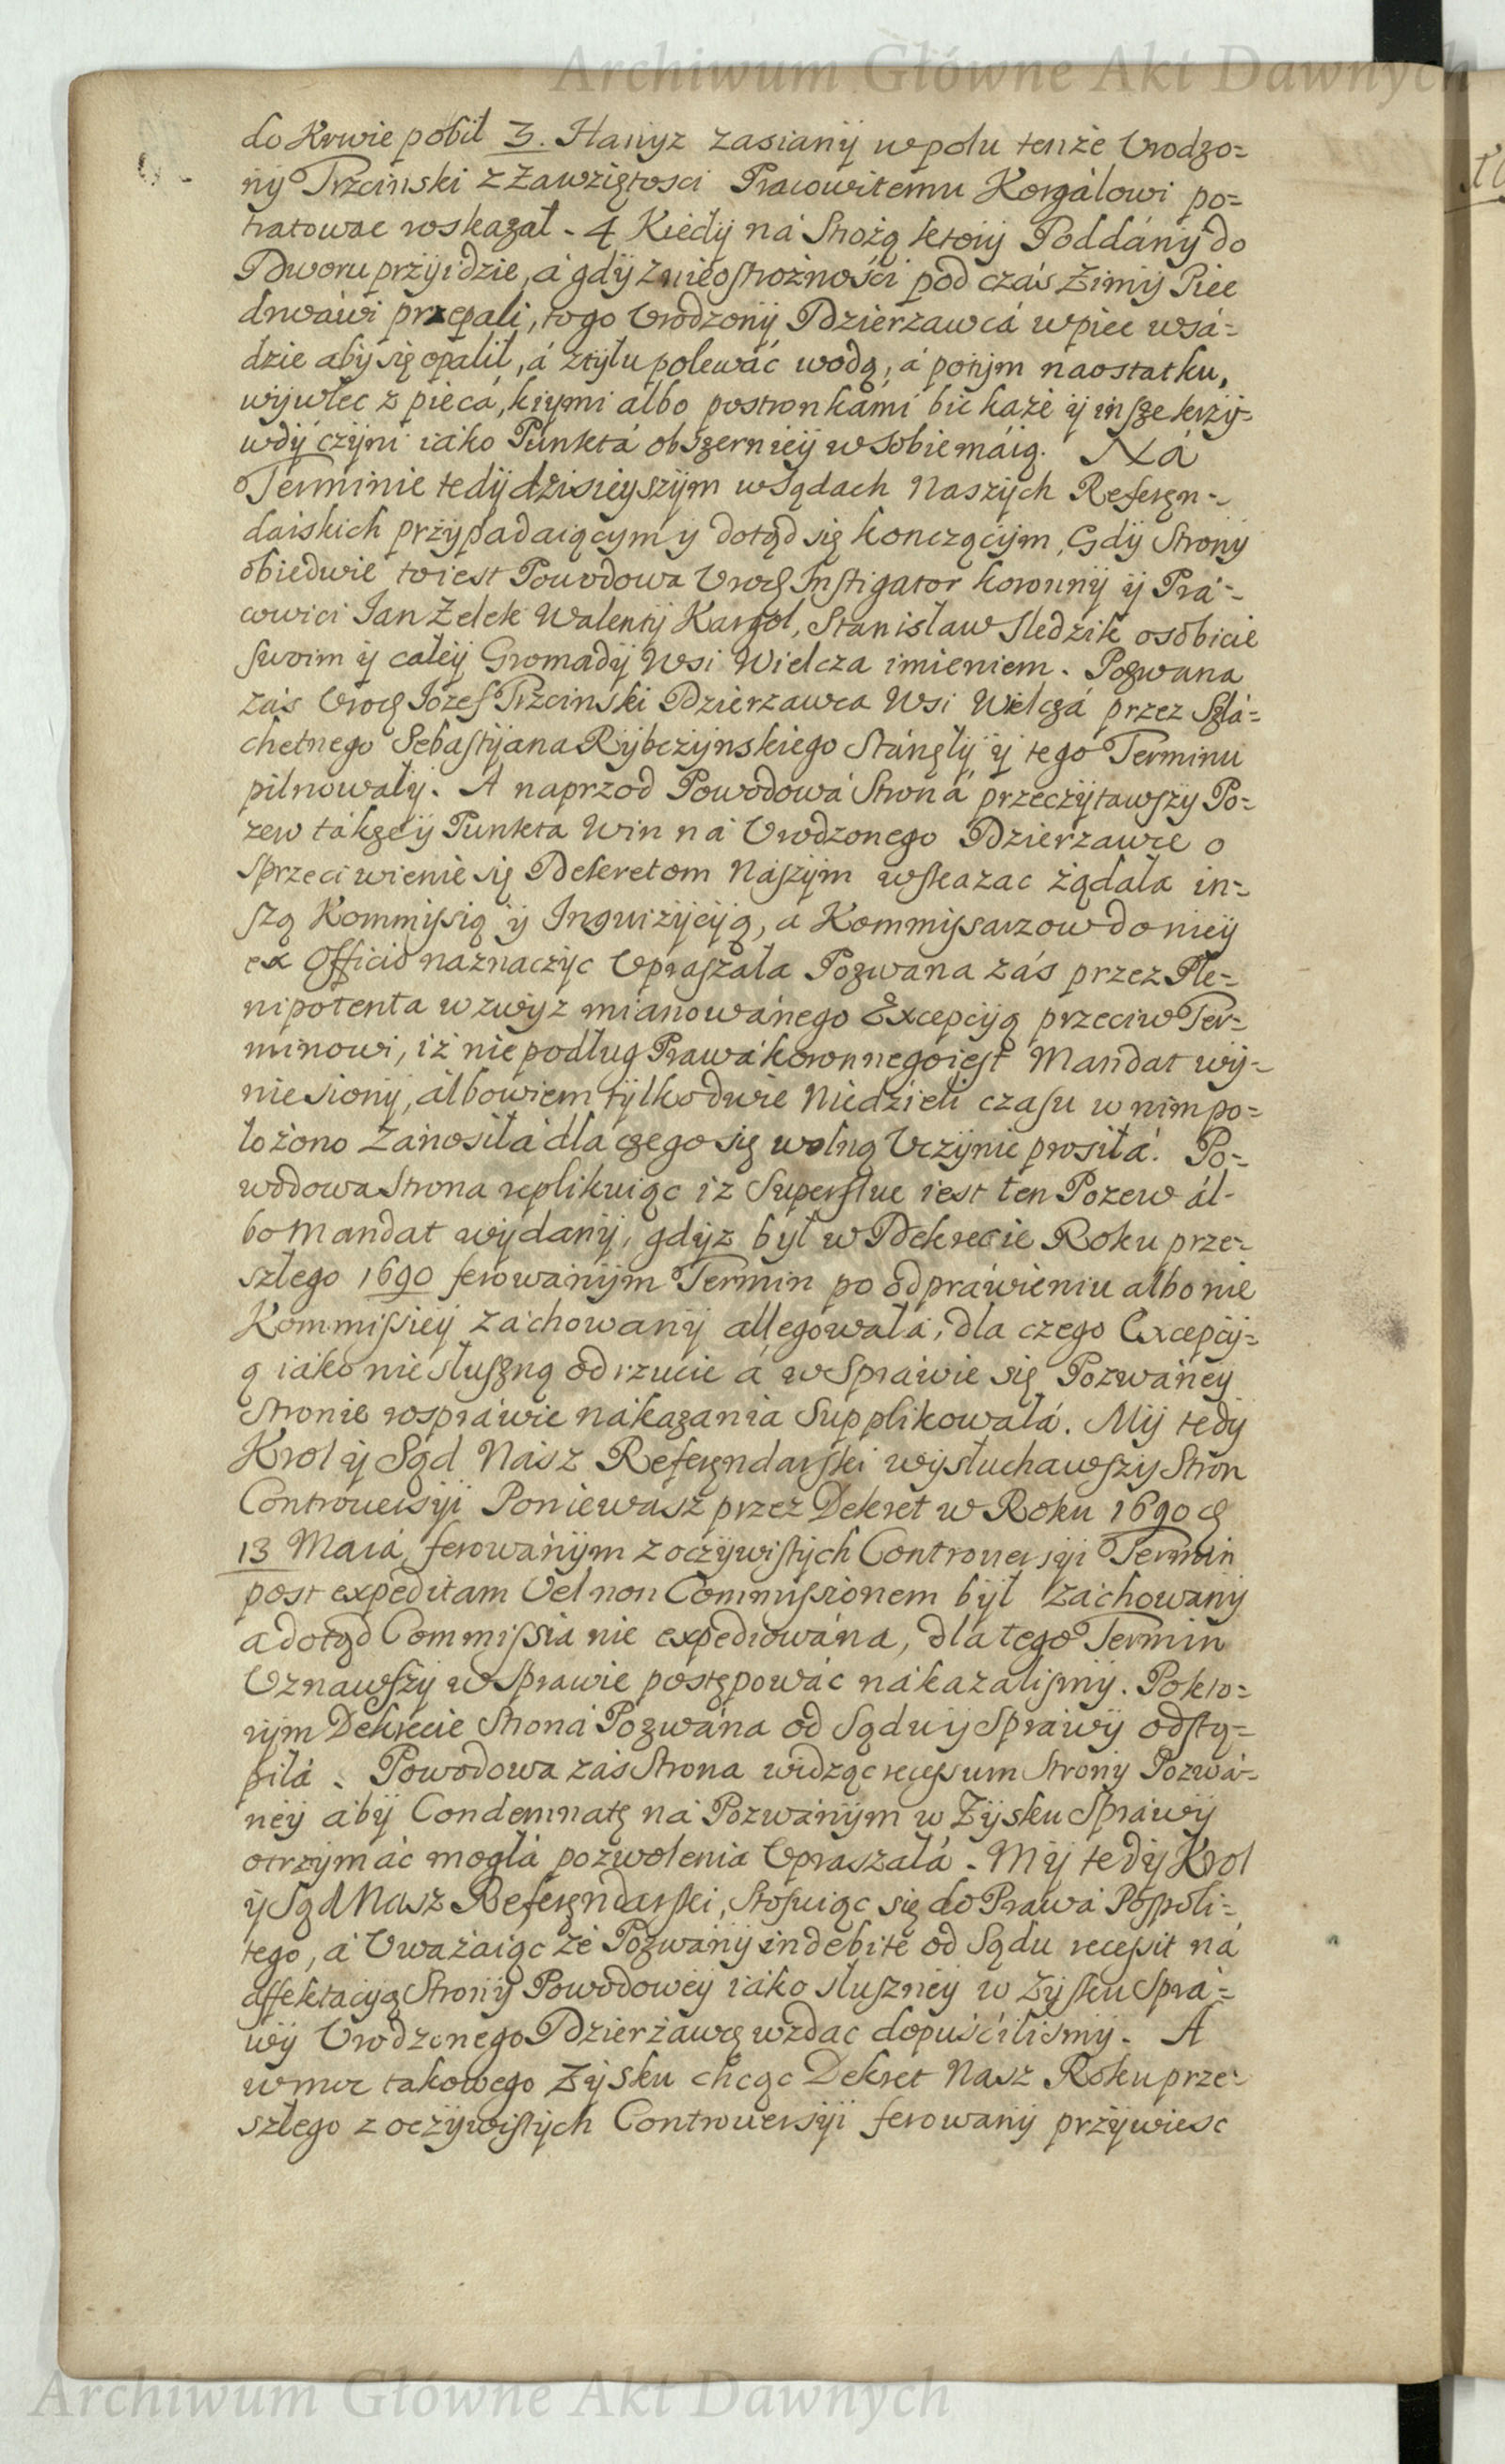 Archiwum Główne Akt Dawnych
do Krwie pobił 3. Hanyz zasianÿ w polu tenże Vrodzo=
nÿ Trzcinski z Zawziętosci Pracowitemu Korgalowi po=
tratowac roskazał. 4 Kiedÿ ná Strożą ktorÿ Poddánÿ do
Dworu przÿidzie, á gdÿ z nieostrożnośći pod czás Zimÿ Piec
drwáwi przepali, togo Vrodzonÿ Dzierzawcá w piec wsá=
dzie abÿ się opalił, á ztÿłu polewáć wodą, á potÿm naostatku,
wÿwlec z piecá, kiymi álbo postronkámi bic każe ÿ insze krzÿ=
wdÿ czÿni iáko Punktá obszernieÿ w sobie máią. Ná
Terminie tedÿ dzisieyszÿm w Sądach Naszÿch Referęn=
darskich przÿpadaiącym y dotąd się konczącÿm, Gdÿ Stronÿ
obiedwie to iest Powodowa Vrodz Instigator koronnÿ ÿ Prá=
cowici Jan Zelek Walentÿ Kargol, Stanisław Sledzik osobicie
swoim ÿ całeÿ Gromadÿ Wsi Wielcza imieniem. Pozwana
zás Vrodz Jozef Trzcinski Dzierzawca Wsi Wielczá przez Szlá=
chetnego Sebastÿana Rÿbczÿnskiego Stánęłÿ ÿ tego Terminu
pilnowałÿ. A naprzod Powodowá Stroná przeczÿtawszÿ Po=
zew tákze ÿ Punkta Win ná Vrodzonego Dzierzawce o
sprzeciwienie się Dekretom Naszÿm wskazac żądała in=
szą Kommissią ÿ Inquizÿcÿą, a Kommissarzow do nieÿ
ex Officio naznaczÿc Vpraszała Pozwana zás przez Ple=
nipotenta wzwÿz mianowánego Excepcÿą przeciw Ter=
minowi, iż nie podług Prawá koronnego iest Mandat wÿ=
niesionÿ, álbowiem tÿlko dwie Niedzieli czasu w nim po=
łożono Zánosiłá dla czego się wolną Vczÿnic prosiłá. Po=
wodowa Strona replikuiąc iż Superflue iest ten Pozew ál=
bo Mandat wÿdanÿ, gdÿz był w Dekrecie Roku prze=
szłego 1690 ferowánÿm Termin po odpráwieniu albo nie
Kommissieÿ záchowanÿ allegowałá, dla czego Excepcÿ=
ą iáko niesłuszną odrzucic á w Spráwie się Pozwáney
Stronie rospráwic nákazania Supplikowałá. Mÿ tedÿ
Krol ÿ Sąd Nász Referęndarski wÿsłuchawszÿ Stron
Controuersÿi Poniewász przez Dekret w Roku 1690 d
13 Maiá ferowánÿm z oczÿwistÿch Controuersÿi Termin
post expeditam Vel non Commissionem bÿł záchowanÿ
a dotąd Commissia nie expediowána, dla tego Termin
Vznawszÿ w Sprawie postępowáć nákazalismÿ. Po kto=
rÿm Dekrecie Stroná Pozwána od Sądu ÿ Sprawÿ odstą=
piłá. Powodowa zás Strona widząc recessum Stronÿ Pozwá=
nëÿ ábÿ Condemnatę ná Pozwánÿm w Zÿsku Spráwÿ
otrzÿmáć mogłá pozwolenia Vpraszałá. Mÿ tedÿ Krol
ÿ Sąd Nasz Referęndarski, Stosuiąc się do Prawá Pospoli=
tego, á Vważaiąc że Pozwánÿ indebite od Sądu recessit ná
affektacÿą Stronÿ Powodoweÿ iáko słuszneÿ w Zÿsku Sprá=
wÿ Vrodzonego Dzierżawcę wzdac dopuśćilismÿ. A
w moc takowego Zÿsku chcąc Dekret Nasz Roku prze=
szłego z oczÿwistÿch Controuersÿi ferowanÿ przÿwiesc
Archiwum Główne Akt Dawnych